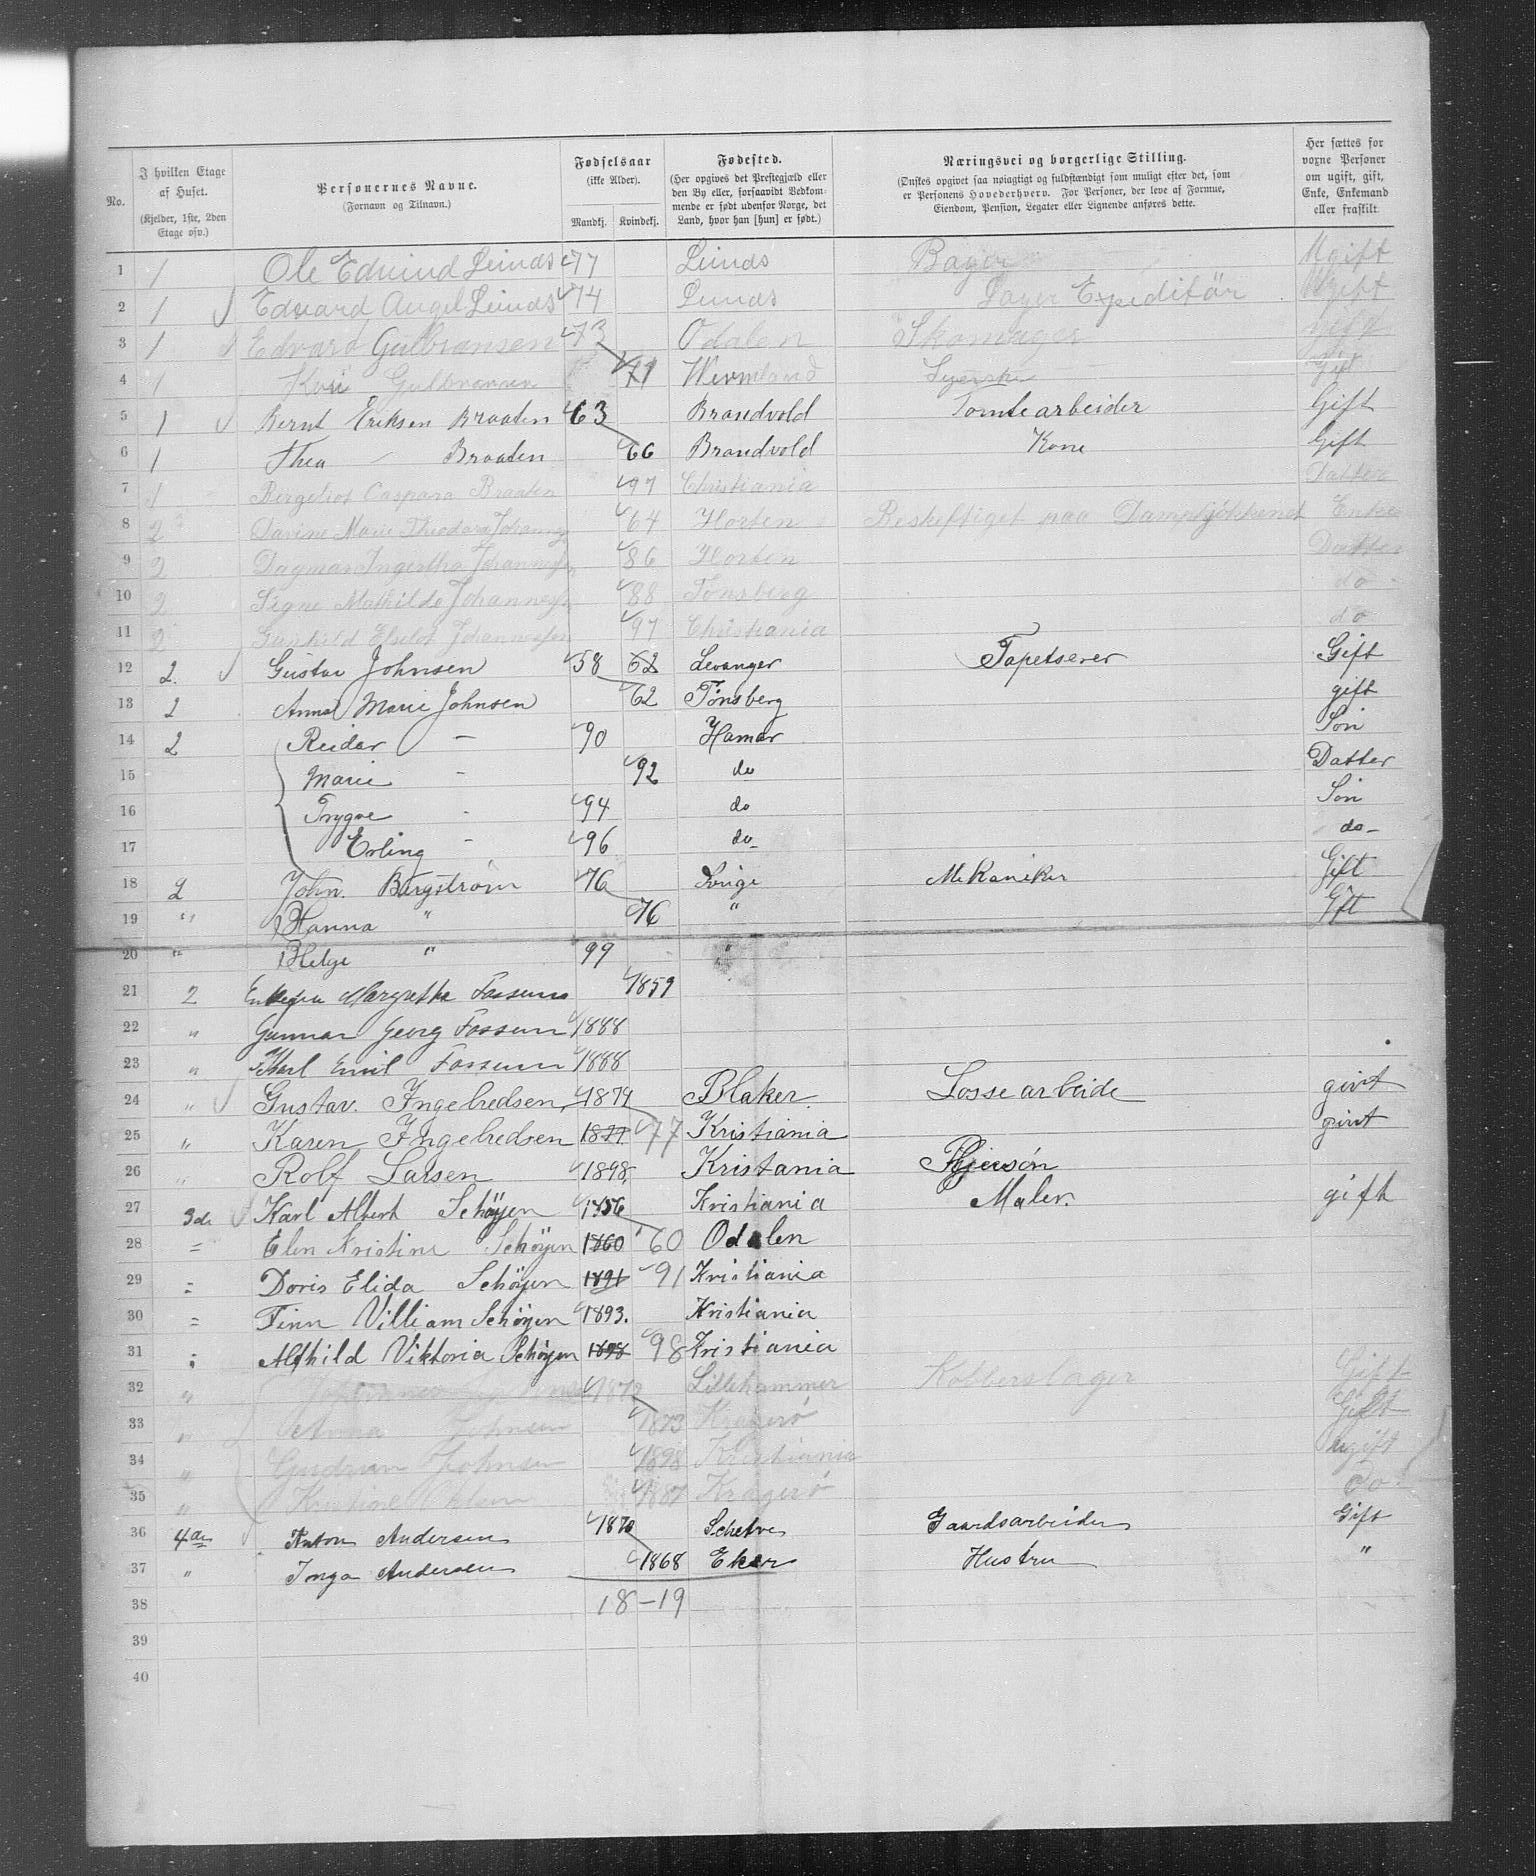 No.
I hvilken Etage af Huset. (Kjelder, 1ste, 2den Etage osv.)
Personernes Navne. (Fornavn og Tilnavn.)
Fødselsaar (ikke Alder). Mandkj. Kvindekj.
Fødested. (Her opgives det Prestegjæld eller den By eller, forsaavidt Vedkommende er født udenfor Norge, det Land, hvor han [hun] er født.)
Næringsvei og borgerlige Stilling. (Ønskes opgivet saa nøiagtigt og fuldstændigt som muligt efter det, som er Personens Hovederhverv. For Personer, der leve af Formue, Eiendom, Pension, Legater eller Lignende anføres dette.
Her sættes for voxne Personer om ugift, gift, Enke, Enkemand eller fraskilt.
1 1 Ole Edvind Leinds 77 Leinds Ugift
2 1 Edvard Leinds 74 Expeditör Ugift
3 1 Edvard Gulbransen 73 Odalen Skomager Gift
4 1 Gulbransen 71 Wermland Syerske Gift
5 1 Bernt Eriksen Braaten 63 Brandvold Tomtearbeider Gift
6 1 Thea Braaten 66 Brandvold Kone Gift
7 1 Bergeliot Caspara Braaten 97 Christiania Datter
8 2 Marie Theodora 64 Horten Beskeftiget paa Dampkjökkenet Enke
9 2 Dagmar Johannessen 86 Horten Datter
10 2 Signe Mathilde Johannessen 88 Tønsberg do
11 2 Johannessen 97 Christiania do
12 2. Gustav Johnsen 58 62 Levanger Tapetserer Gift
13 2 Anna Marie Johnsen 62 Tønsberg gift
14 2 Reidar — 90 Hamar Søn
15 Marie - 92 do Datter
16 Trygve - 94 do Søn
17 Erling - 96 do- do-
18 2 John. Bergstrøm 76 Sverige Mekaniker Gift
19 " Hanna " 76 " Gift
20 " Helge " 99 "
21 2 Margrethe Fossum 1859
22 " Gunnar Georg Fossum 1888
23 " Karl Emil Fossum 1888
24 " Gustav. Ingebredsen 1874 Blaker Lossearbeide givt
25 " Karen Ingebredsen 1877 77 Kristiania givt
26 " Rolf Larsen 1898 Kristania Plejesøn
27 3de Karl Albert Schøyen 1856 Kristiania Maler. gift
28 = Elen Kristine Schøyen 1860 60 Odalen
29 = Doris Elida Schøyen 1891 91 Kristiania
30 = Finn Villiam Schøyen 1893. Kristiania
31 = Alfhild Viktoria Schøyen 1898 98 Kristiania
32 " 1872 Lillehammer Kobberslager Gift
33 " Anna Johnsen 1873 Kragerö Gift
34 " Gudrun Johnsen 1898 Kristiania ugift
35 " Kristine Olsen 1881 Kragerö Do
36 4de Anton Andersen 1870 Gaardsarbeider Gift
37 " Inga Andersen 1868 Eker Hustru "
38 18-19
39
40